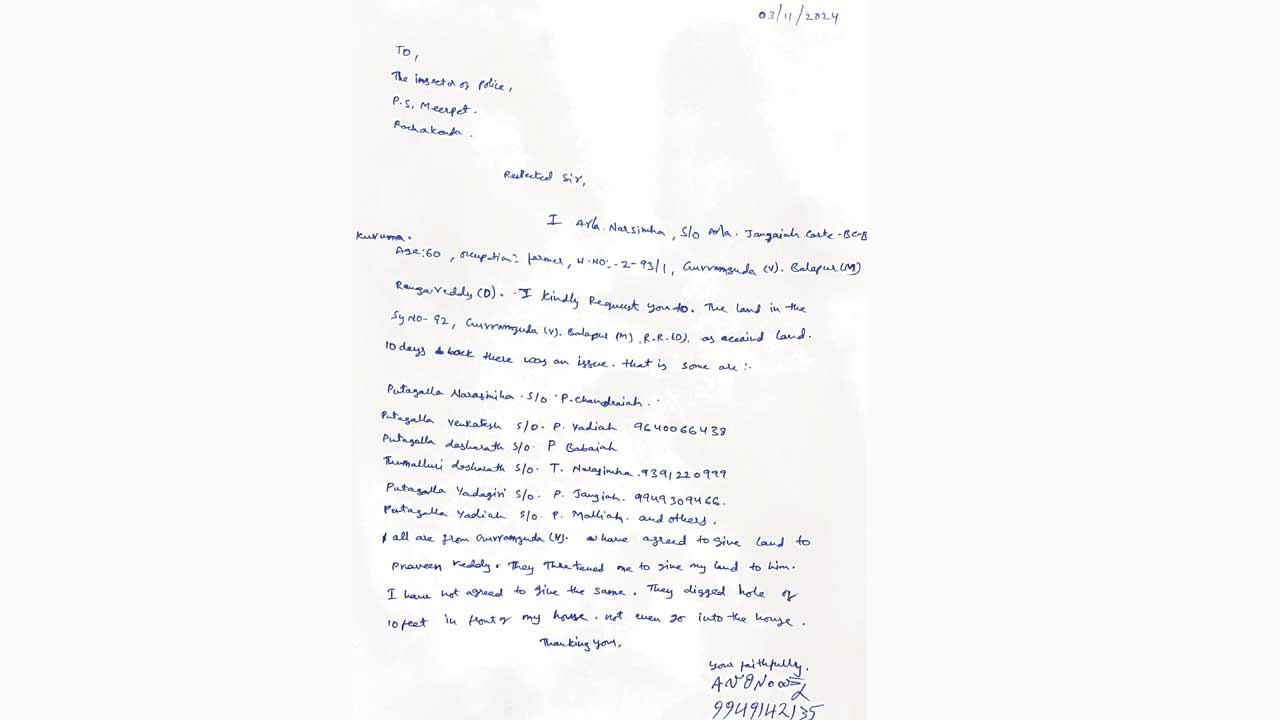 03/11/2024
To,
The inspector of police,
P.S, Meerpet.
Rachakonda.
Respected Sir,
I Arla. Narsimha, S/o Arla. Jangaiah Caste -BC-B
Kuruma.
Age:60, occupation:- farmer, H.NO:-2-93/1, Gurramguda (V). Balapur (M)
Rangareddy (D). I kindly Request you to. The land in the
Sy NO-92, Gurramguda (V). Balapur (M), R.R.(D). as land.
10 days back there was an issue. that is some are :-
Putagalla Narasimha S/o P. Chandraiah.
Putagalla Venkatesh S/o. P. Yadiah 9640066438
Putagalla dasharath S/o. P Babaiah
Thumalluri dasharath S/o. T. Narasimha.9391220999
Putagalla Yadagiri S/o. P. Jangiah. 9949309466.
Putagalla Yadiah S/o. P. Malliah. and others.
all are from Gurramguda (V). have agreed to give land to
Praveen reddy. They threatened me to give my land to him.
I have not agreed to give the same. They digged hole of
10 feet in front of my house. not even go into the house.
Thanking you,
your faithfully.
9949142135